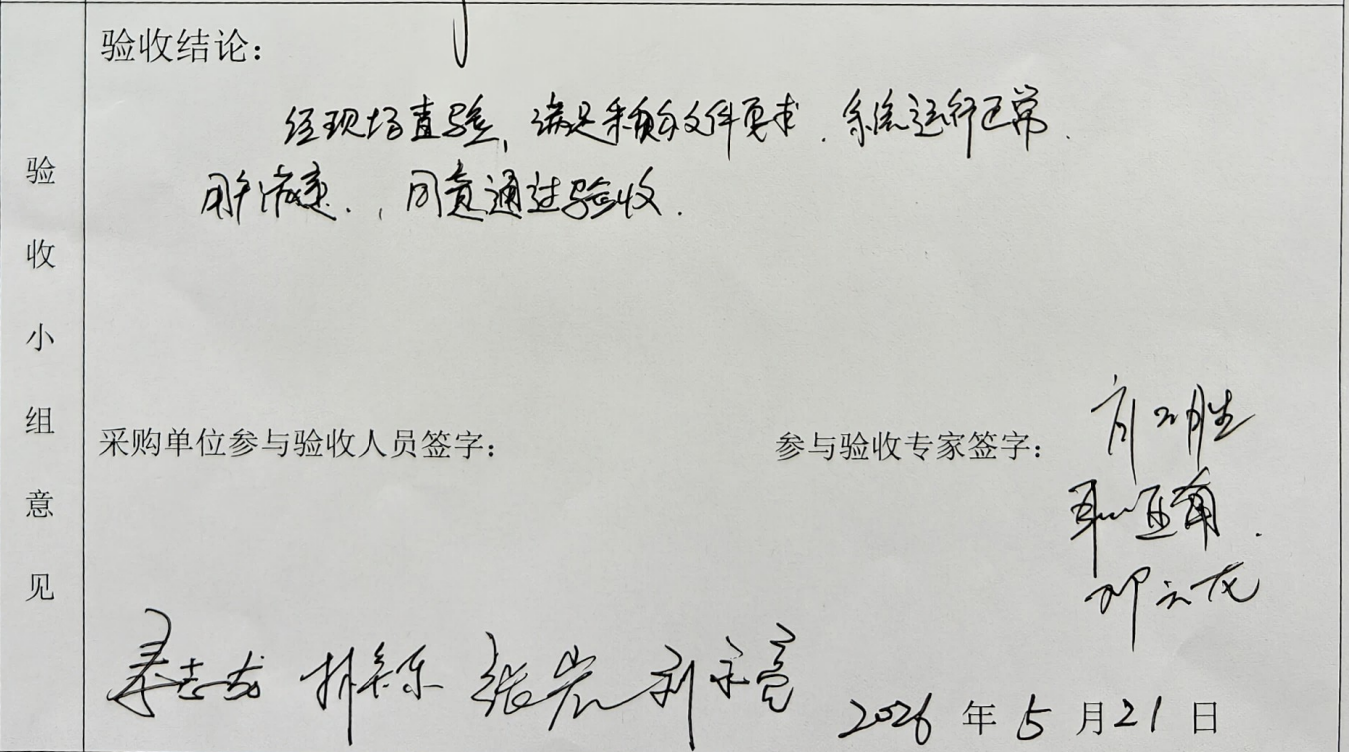 验收小组意见
验收结论：
经现场查验，满足采购文件要求，系统运行正常，
用户满意，同意通过验收。
采购单位参与验收人员签字：
参与验收专家签字：
张岩
邓云龙
2026年5月21日